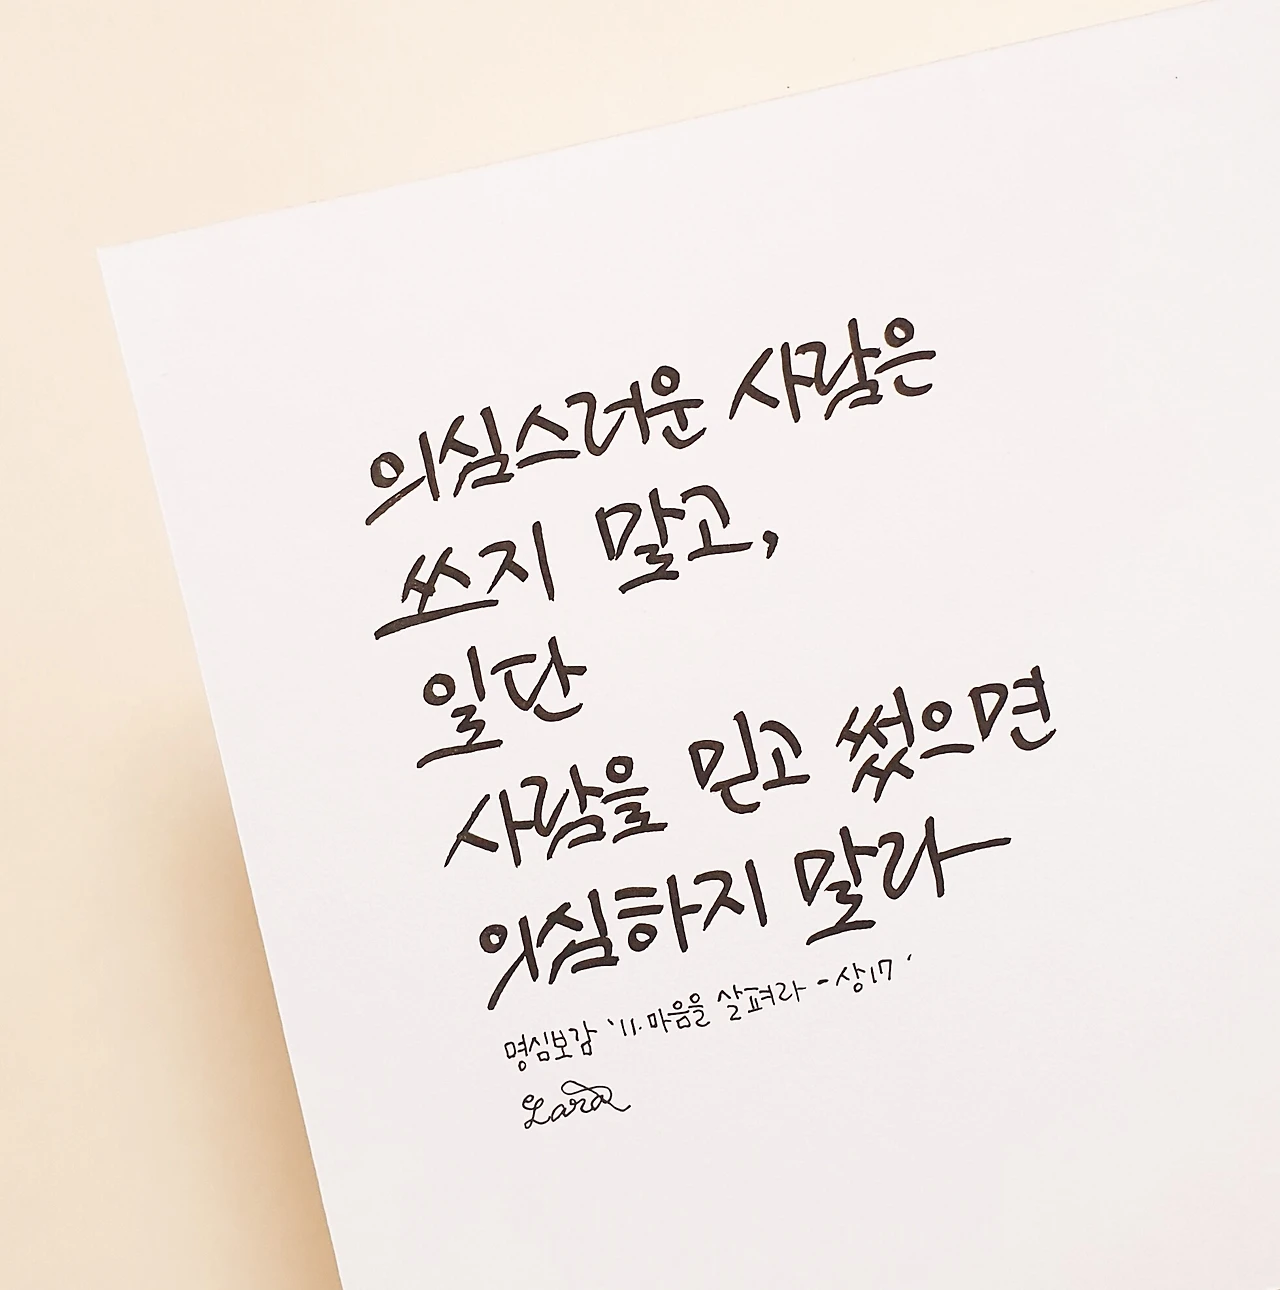 의심스러운 사람은
쓰지 말고,
일단
사람을 믿고 썼으면
의심하지 말라
명심보감 '11. 마음을 살펴라 - 상17'
Lara